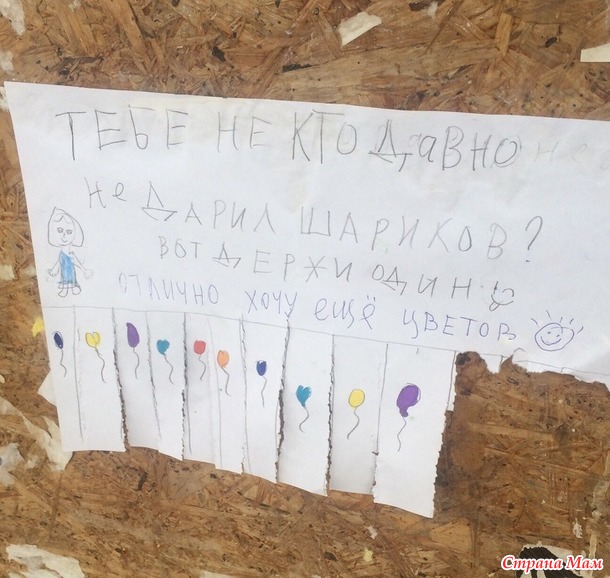 ТЕБЕ НЕ КТО ДАВНО
НЕ ДАРИЛ ШАРИКОВ?
ВОТ ДЕРЖИ ОДИН
ОТЛИЧНО ХОЧУ ЕЩЁ ЦВЕТОВ
Страна Мам